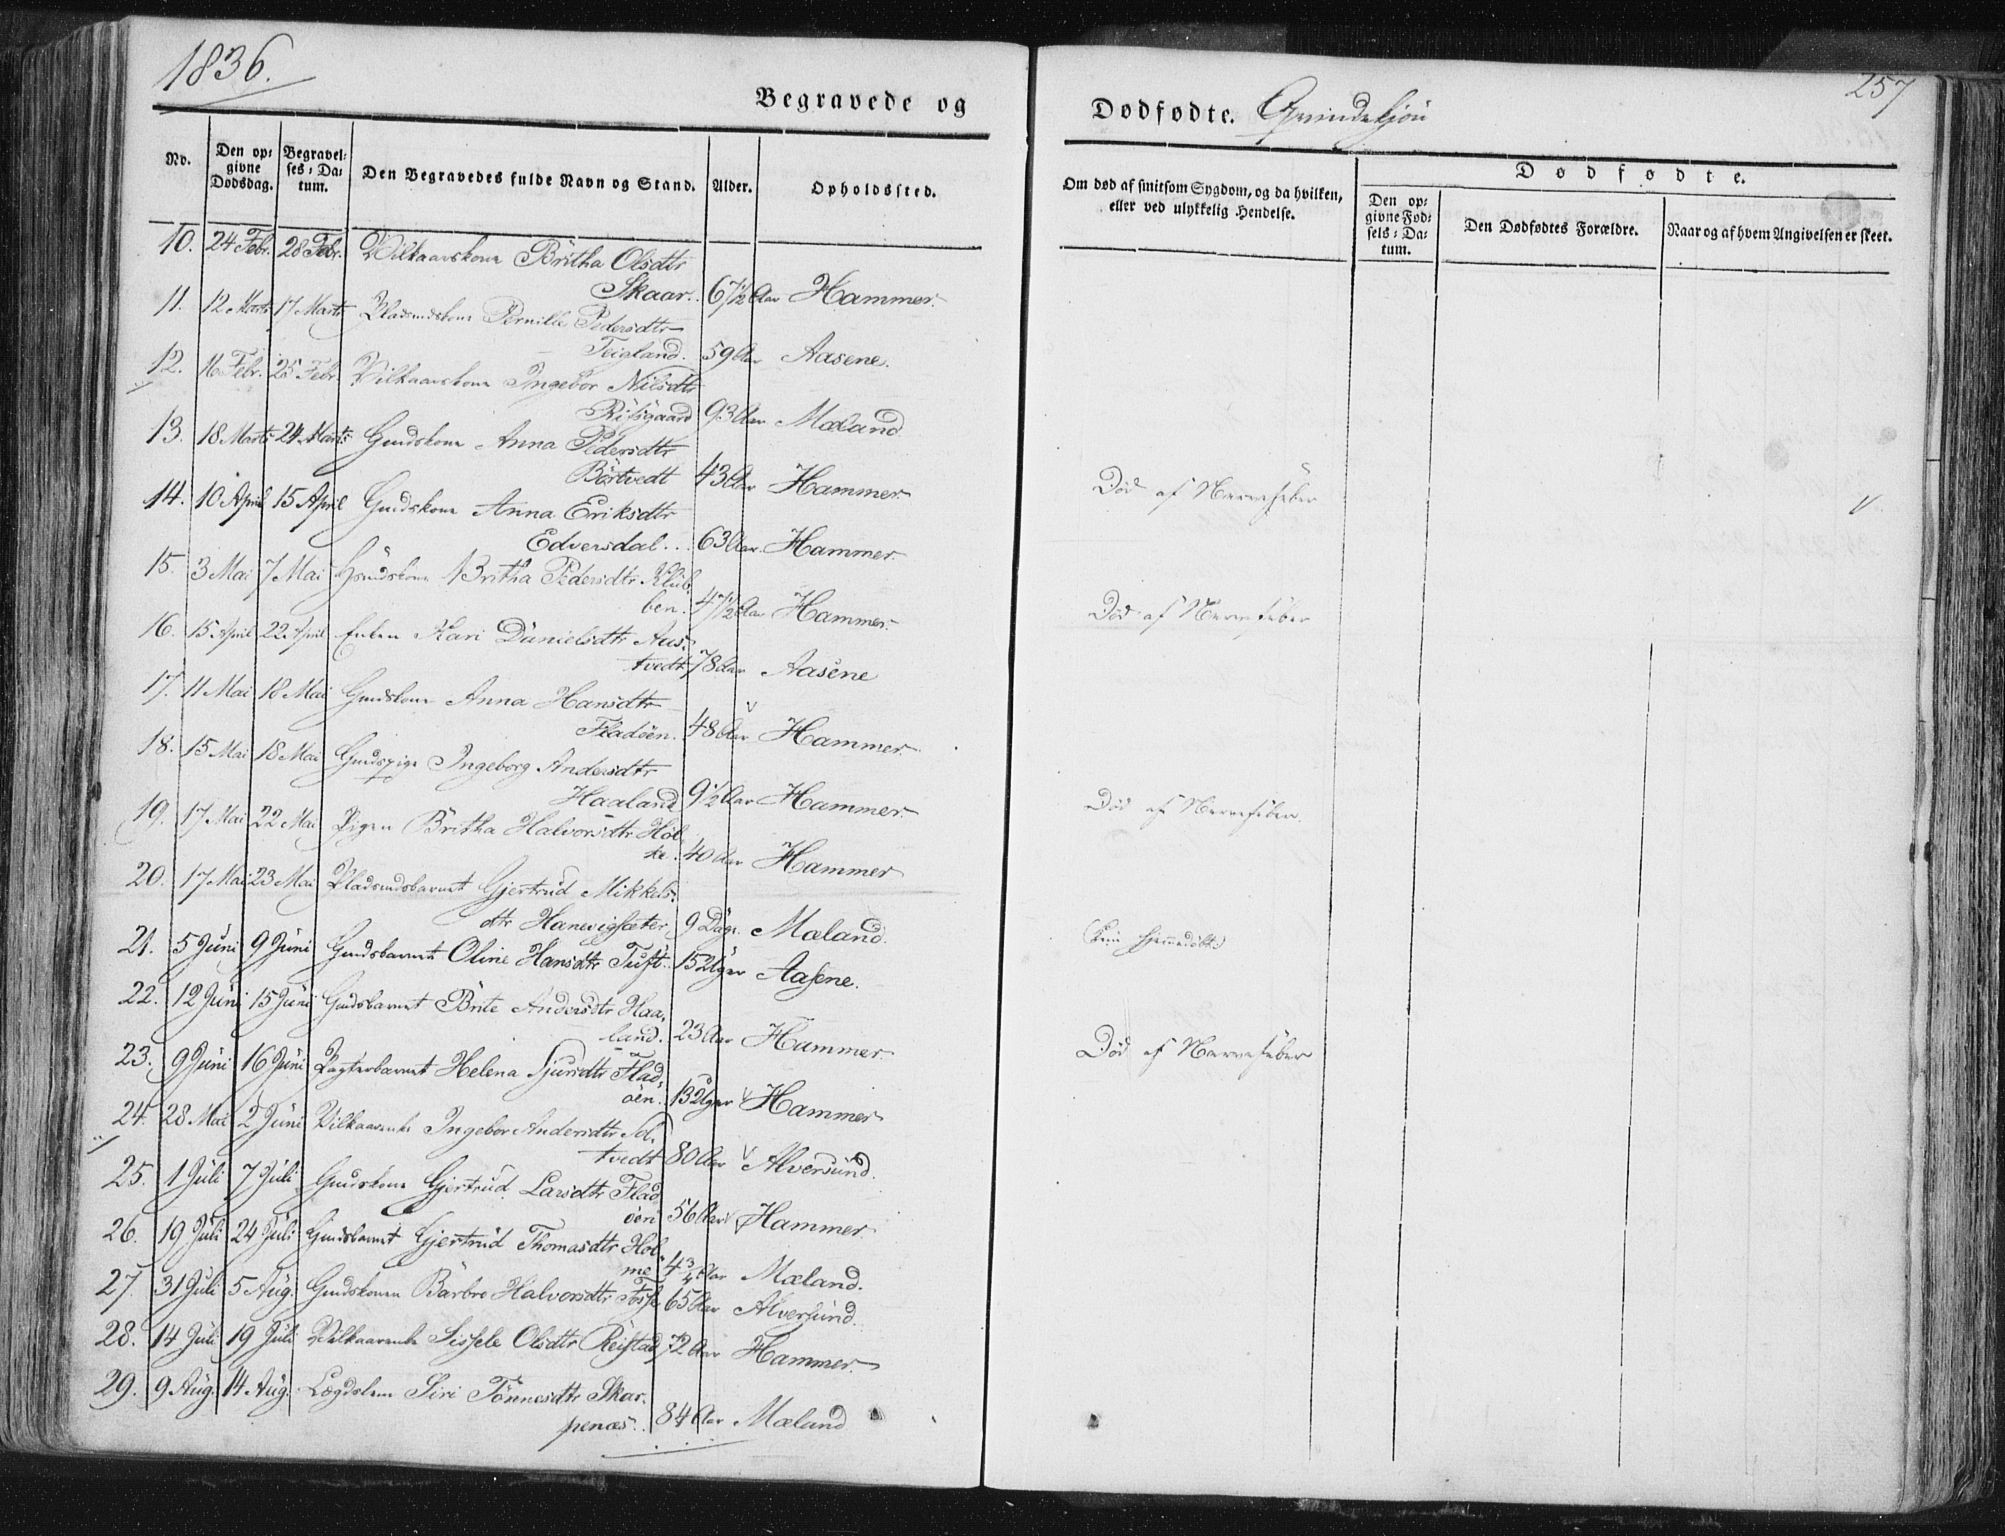 1836.
257
Begravede og
Dødfødte. Qvindekjøn
No.
Den opgivne Dødsdag.
Begravelses-Datum.
Den Begravedes fulde Navn og Stand.
Alder.
Opholdssted.
Om død af smitsom Sygdom, og da hvilken, eller ved ulykkelig Hendelse.
Dødfødte.
Den opgivne Fødsels-Datum.
Den Dødfødtes Forældre.
Naar og af hvem Angivelsen er skeet.
10. 24 Febr. 28 Febr. Vilkaarskone Britha Olsdtr
Skaar. 67½ Aar Hammer.
11. 12 Marts 17 Marts Pladsmdskone Pernille Pedersdtr
Teigland. 59 Aar Aasene.
12. 16 Febr. 25 Febr. Vilkaarskone Ingebor Nilsdtr
93 Aar Mæland
13. 18 Marts 24 Marts Gmdskone Anna Pedersdtr
Börtvedt 43 Aar Hammer Död af Nervefeber
14. 10 April 15 April Gmdskone Anna Eriksdtr
Edversdal... 63 Aar. Hammer
15. 3 Mai 7 Mai Hsmdskone Britha Pedersdtr Klüb-
ben. 47½ Aar Hammer. Död af Nervefeber
16. 15 April 22 April Enken Kari Danielsdtr Aus-
tvedt 78 Aar Aasene
17. 11 Mai 18 Mai Gmdskone Anna Hansdtr
Fladöen. 48 Aar Hammer
18. 15 Mai 18 Mai Gmdspige Ingeborg Andersdtr
Haaland 9½ Aar Hammer Död af Nervefeber.
19. 17 Mai 22 Mai Pigen Britha Halvorsdtr Hol-
te. 40 Aar Hammer
20. 17 Mai 23 Mai Pladsmdsbarnet Gjertrud Mikkels-
dtr Hanevigsæter 9 Dage Mæland. (kun hjemmedöbt)
21. 5 Juni 9 Juni Gmdsbarnet Oline Hansdtr Tuft. 15 Uger Aasene.
22. 12 Juni 15 Juni Gmdsbarnet Brite Andersdtr Haa-
land. 23 Aar Hammer Död af Nervefeber
23. 9 Juni 16 Juni Pagterbarnet Helena Sjursdtr Flad-
öen. 13 Uger Hammer
24. 28 Mai 2 Juni Vilkaarenke Ingebor Andersdtr Sel-
tvedt 80 Aar Alversund.
25. 1 Juli 7 Juli Gmdskone Gjertrud Larsdtr Flad
öen 56 Aar Hammer
26. 19 Juli 24 Juli Gmdsbarnet Gjertrud Thomasdtr Hol
me 4¾ Aar Mæland.
27. 31 Juli 5 Aug. Gmdskonen Barbro Halvorsdtr Fosse 65 Aar Alversund.
28. 14 Juli 19 Juli Vilkaarenke Sissele Olsdtr Reistad 72 Aar Hammer.
29. 9 Aug. 14 Aug. Lægdslem Siri Tönnesdtr Skar-
penæs. 84 Aar Mæland